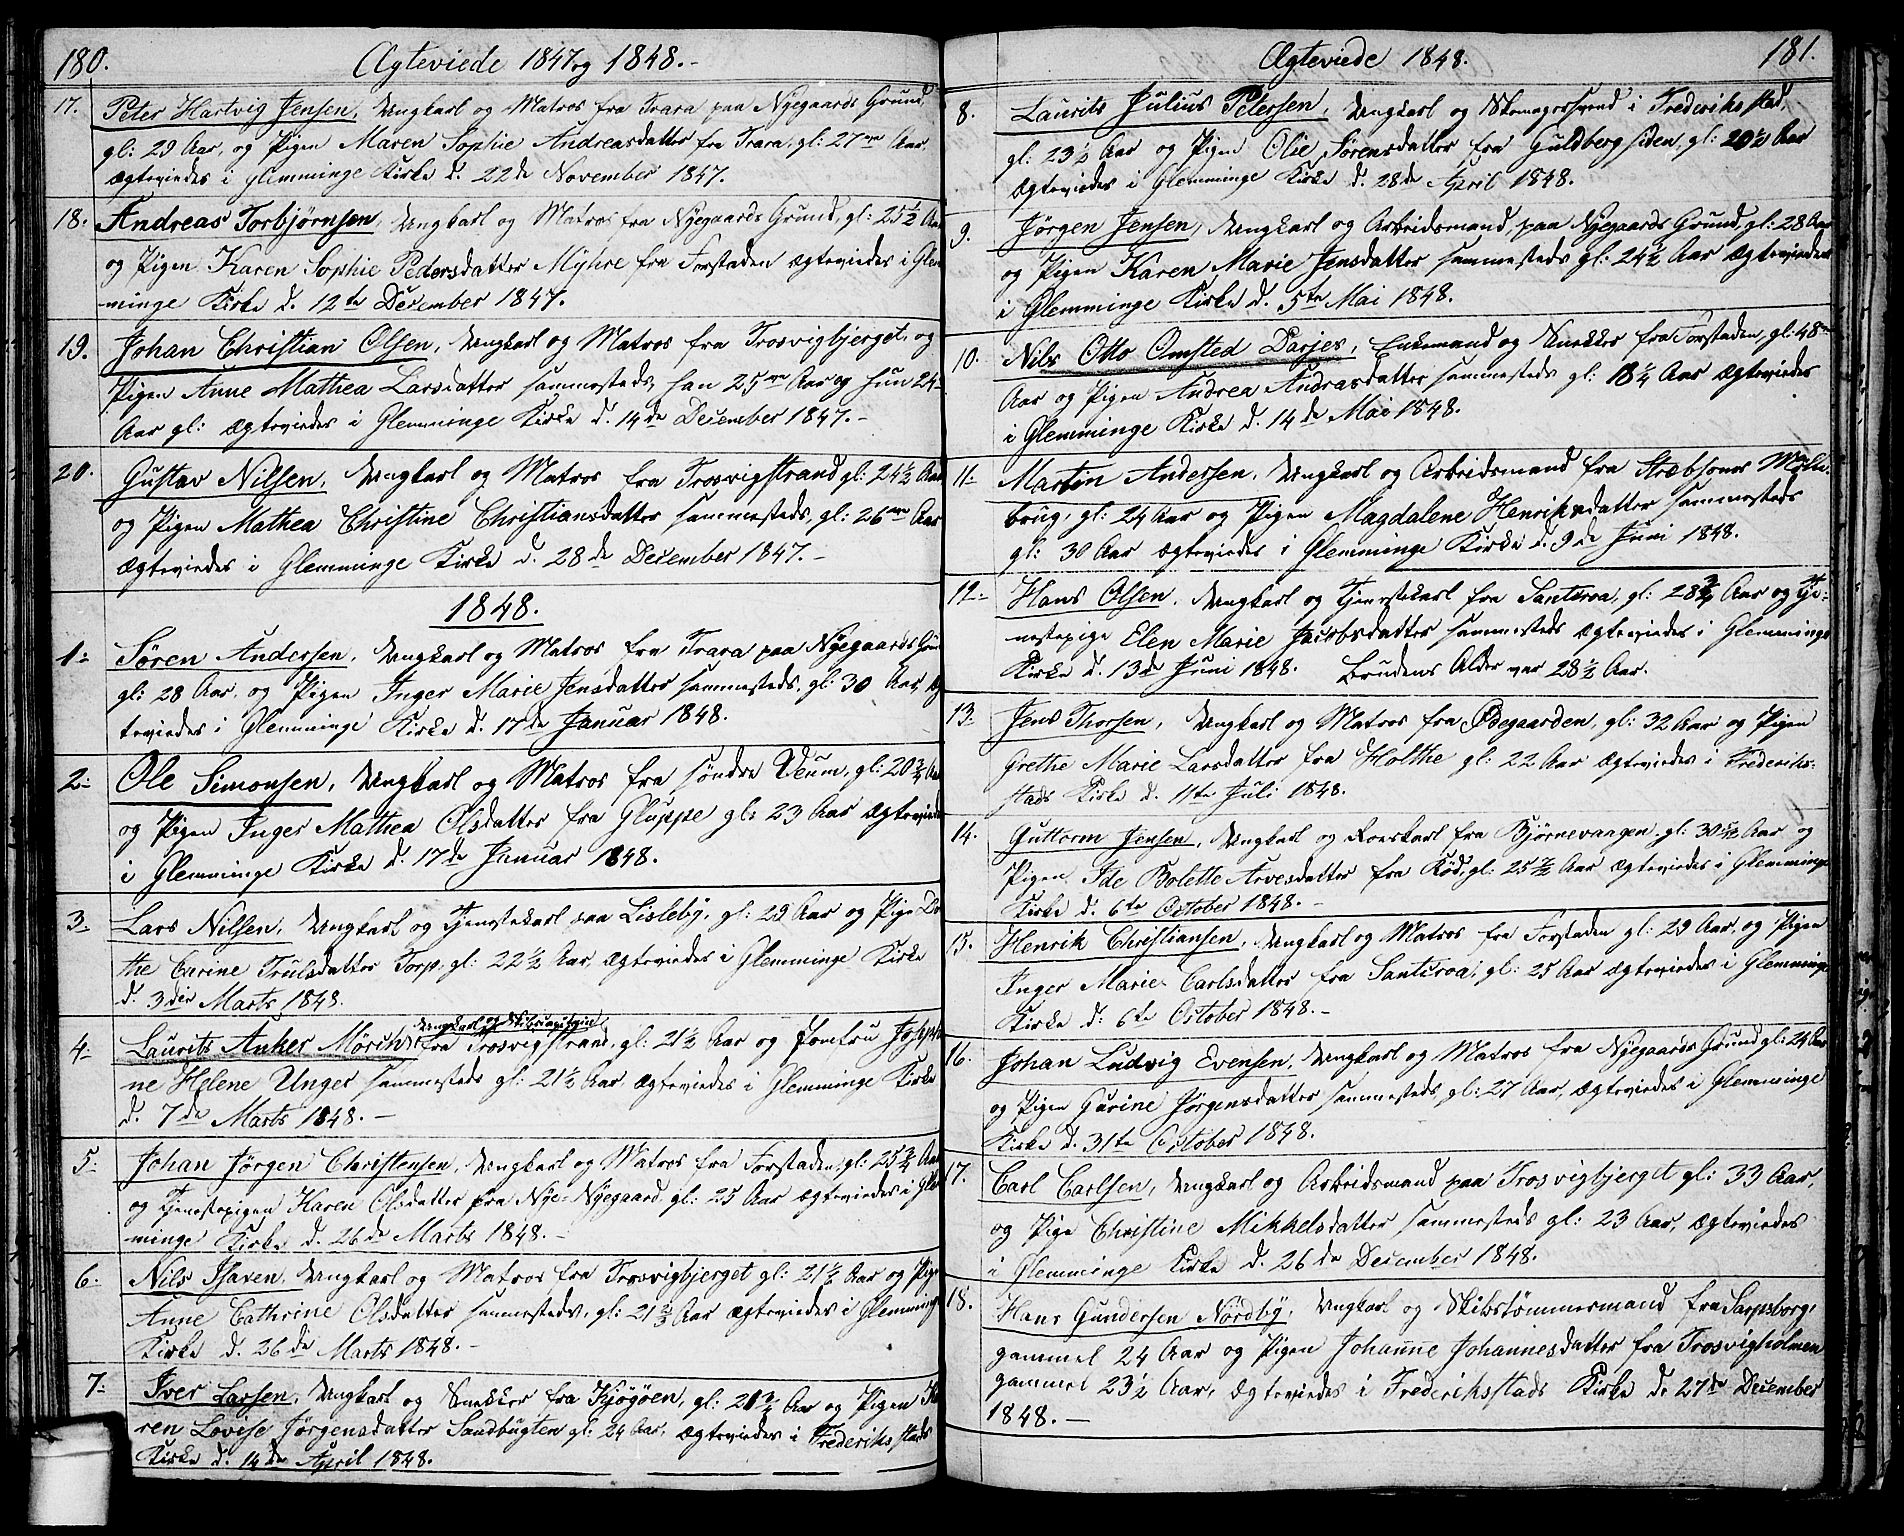 180.
Ægteviede 1847 og 1848.-
17. Peter Hartvig Jensen, Ungkarl og Matros fra Trara paa Nyegaards Grund,
gl: 29 Aar, og Pigen Maren Sophie Andreasdatter fra Trara, gl: 27 Aar
ægteviedes i Glemminge Kirke d. 22de November 1847.
18. Andreas Torbjørnsen, Ungkarl og Matros fra Nyegaards Grund, gl: 25½ Aar
og Pigen Karen Sophie Pedersdatter Myhre fra Forstaden ægteviedes i Glem
minge Kirke d. 12te December 1847.
19. Johan Christian Olsen, Ungkarl og Matros fra Trosvigbjerget, og
Pigen Anne Mathea Larsdatter sammesteds, han 25 Aar og hun 24
Aar gl: ægteviedes i Glemminge Kirke d. 14de December 1847.-
20. Gustav Nilsen, Ungkarl og Matros fra Trosvigstrand gl: 24½ Aar
og Pigen Mathea Christine Christiansdatter sammesteds, gl: 26 Aar
ægteviedes i Glemminge Kirke d. 28de December 1847.-
1848.
1: Søren Andersen, Ungkarl og Matros fra Trara paa Nyegaards Grund
gl: 28 Aar, og Pigen Inger Marie Jensdatter sammesteds, gl: 30 Aar, æg
teviedes i Glemminge Kirke d. 17de Januar 1848.
2: Ole Simonsen, Ungkarl og Matros fra søndre Veum, gl: 20¾ Aar
og Pigen Inger Mathea Olsdatter fra Gluppe gl: 23 Aar ægteviede
i Glemminge Kirke d. 17de Januar 1848.
3. Lars Nilsen, Ungkarl og Tjenestekarl paa Lisleby, gl: 29 Aar og Pige Do
the Carine Trulsdatter Torp, gl: 22½ Aar, ægteviedes i Glemminge Kirke
d. 3die Marts 1848.
Ungkarl og
4. Laurits Anker Mørch fra Trosvigstrand, gl: 21½ Aar og Jomfru Josephi
ne Helene Unger sammesteds gl: 21½ Aar ægteviedes i Glemminge Kirke
d. 7de Marts 1848.-
5. Johan Jørgen Christensen, Ungkarl og Matros fra Forstaden, gl: 25¾ Aar
og Tjenestepigen Karen Olsdatter fra Nye-Nyegaard gl: 25 Aar ægteviedes i Glem
minge Kirke d. 26de Marts 1848.-
6. Nils Isaren, Ungkarl og Matros fra Trosvigbjerget gl: 21½ Aar og Pige
Anne Cathrine Olsdatter sammesteds, gl: 21 Aar ægteviedes i Glemminge
Kirke d. 26de Marts 1848.-
7. Iver Larsen, Ungkarl og Snekker fra Kjøgøen, gl: 21¾ Aar og Pigen Ka
ren Lovise Jørgensdatter Sandbugten gl: 24 Aar, ægteviedes i Frederiksstads
Kirke d. 14de April 1848.
Ægteviede 1848.
181.
8. Laurits Julius Petersen, Ungkarl og Skomagersvend i Frederiksstad,
gl: 23½ Aar og Pigen Olie Sørensdatter fra Guldbergsiden, gl: 20½ Aar
ægteviedes i Glemminge Kirke d. 28de April 1848.
9. Jørgen Jensen, Ungkarl og Arbeidsmand, paa Nyegaards Grund, gl: 28 Aar
og Pigen Karen Marie Jensdatter sammesteds gl: 24½ Aar ægteviedes
i Glemminge Kirke d. 5te Mai 1848.
10. Nils Otto Omsted Darjes, Enkemand og Snekker fra Forstaden, gl: 48
Aar og Pigen Andrea Andrasdatter sammesteds gl: 18¼ Aar ægteviedes
i Glemminge Kirke d. 14de Mai 1848.
11. Martin Andersen, Ungkarl og Arbeidsmand fra
brug, gl: 24 Aar og Pigen Magdalene Henriksdatter sammesteds
gl: 30 Aar ægteviedes i Glemminge Kirke d. 9de Juni 1848.
12. Hans Olsen, Ungkarl og Tjenestekarl fra Santeroa, gl: 28¾ Aar og Tje-
nestepige Elen Marie Jacobsdatter sammesteds ægteviedes i Glemminge
Kirke d. 13de Juni 1848. Brudens Alder var 28½ Aar.
13. Jens Thorsen, Ungkarl og Matros fra Ødegaarden, gl: 32 Aar og Pigen
Grethe Marie Larsdatter fra Holthe gl: 22 Aar ægteviedes i Frederik-
stads Kirke d. 11te Juli 1848.
14. Guttorm Jensen, Ungkarl og Roerskarl fra Bjørnevaagen gl: 30 Aar og
Pigen Ide Bolette Arvesdatter fra Rød, gl: 25½ Aar ægteviedes i Glemminge
Kirke d. 6te October 1848.-
15. Henrik Christiansen, Ungkarl og Matros fra Forstaden gl: 29 Aar, og Pigen
Inger Marie Carlsdatter fra Santeroa, gl: 25 Aar ægteviedes i Glemminge
Kirke d. 6te October 1848.-
16. Johan Ludvig Evensen, Ungkarl og Matros fra Nyegaards Grund gl: 24 Aar
og Pigen Gurine Jørgensdatter sammesteds, gl: 27 Aar, ægteviedes i Glemminge
Kirke d. 31te October 1848.
17. Carl Carlsen, Ungkarl og Arbeidsmand paa Trosvigbjerget gl: 33 Aar,
og Pige Christine Mikkelsdatter sammesteds gl: 23 Aar, ægteviedes
i Glemminge Kirke d. 26de December 1848.
18. Hans Gundersen Nordby, Ungkarl og Skibstømmermand fra Sarpsborg,
gammel 24 Aar og Pigen Johanne Johannesdatter fra Trosvigholmen
gammel 23½ Aar, ægteviedes i Frederiksstads Kirke d. 27de December
1848.-